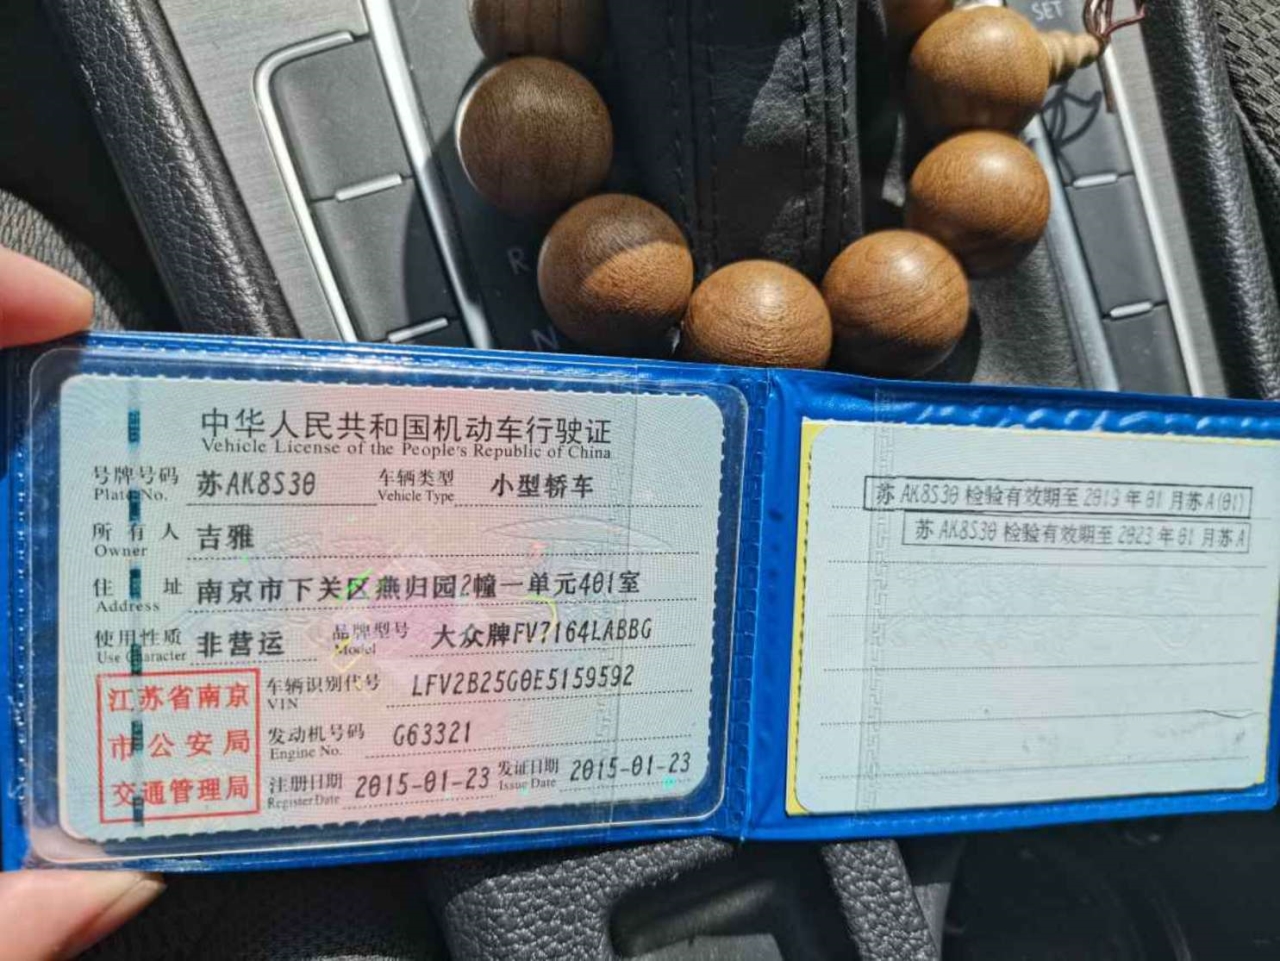 SET
R
N
中华人民共和国机动车行驶证
Vehicle License of the People's Republic of China
号牌号码 苏AK8S30 车辆类型 小型轿车
Plate No. Vehicle Type
所有人 吉雅
Owner
住址 南京市下关区燕归园2幢一单元401室
Address
使用性质 非营运 品牌型号 大众牌FV7164LABBG
Use Character Model
江苏省南京
市公安局
交通管理局
车辆识别代号 LFV2B25G0E5159592
VIN
发动机号码 G63321
Engine No.
注册日期 2015-01-23 发证日期 2015-01-23
Register Date Issue Date
苏AK8S30检验有效期至2019年01月苏A(01)
苏AK8S30检验有效期至2023年01月苏A